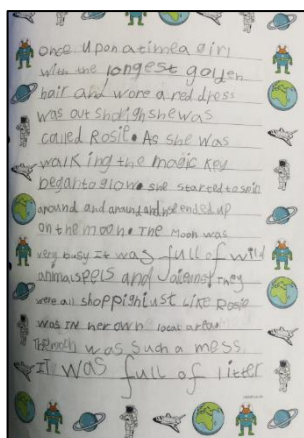 once upon a time a girl
with the longest golden
hair and wore a red dress
was out shoping she was
called Rosie. As she was
walking the magic key
began to glow. she started to spin
around and around and ended up
on the moon. The Moon was
very busy It was full of wild
animals and They
were all shopping just Like Rosie
was IN her own local area
The moon was such a mess
IT was full of litter